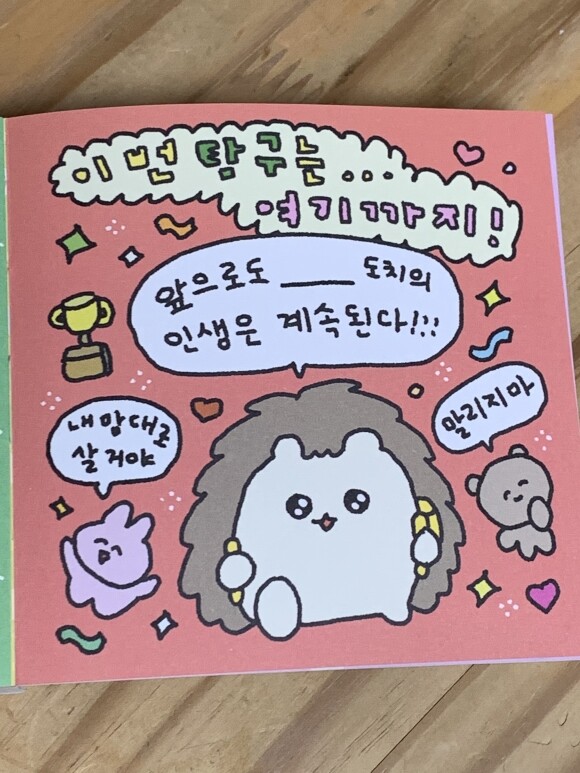 이번 탐구는...
여기까지!
앞으로도 ____ 도치의
인생은 계속된다!!!
내 맘대로
살 거야
말리지마